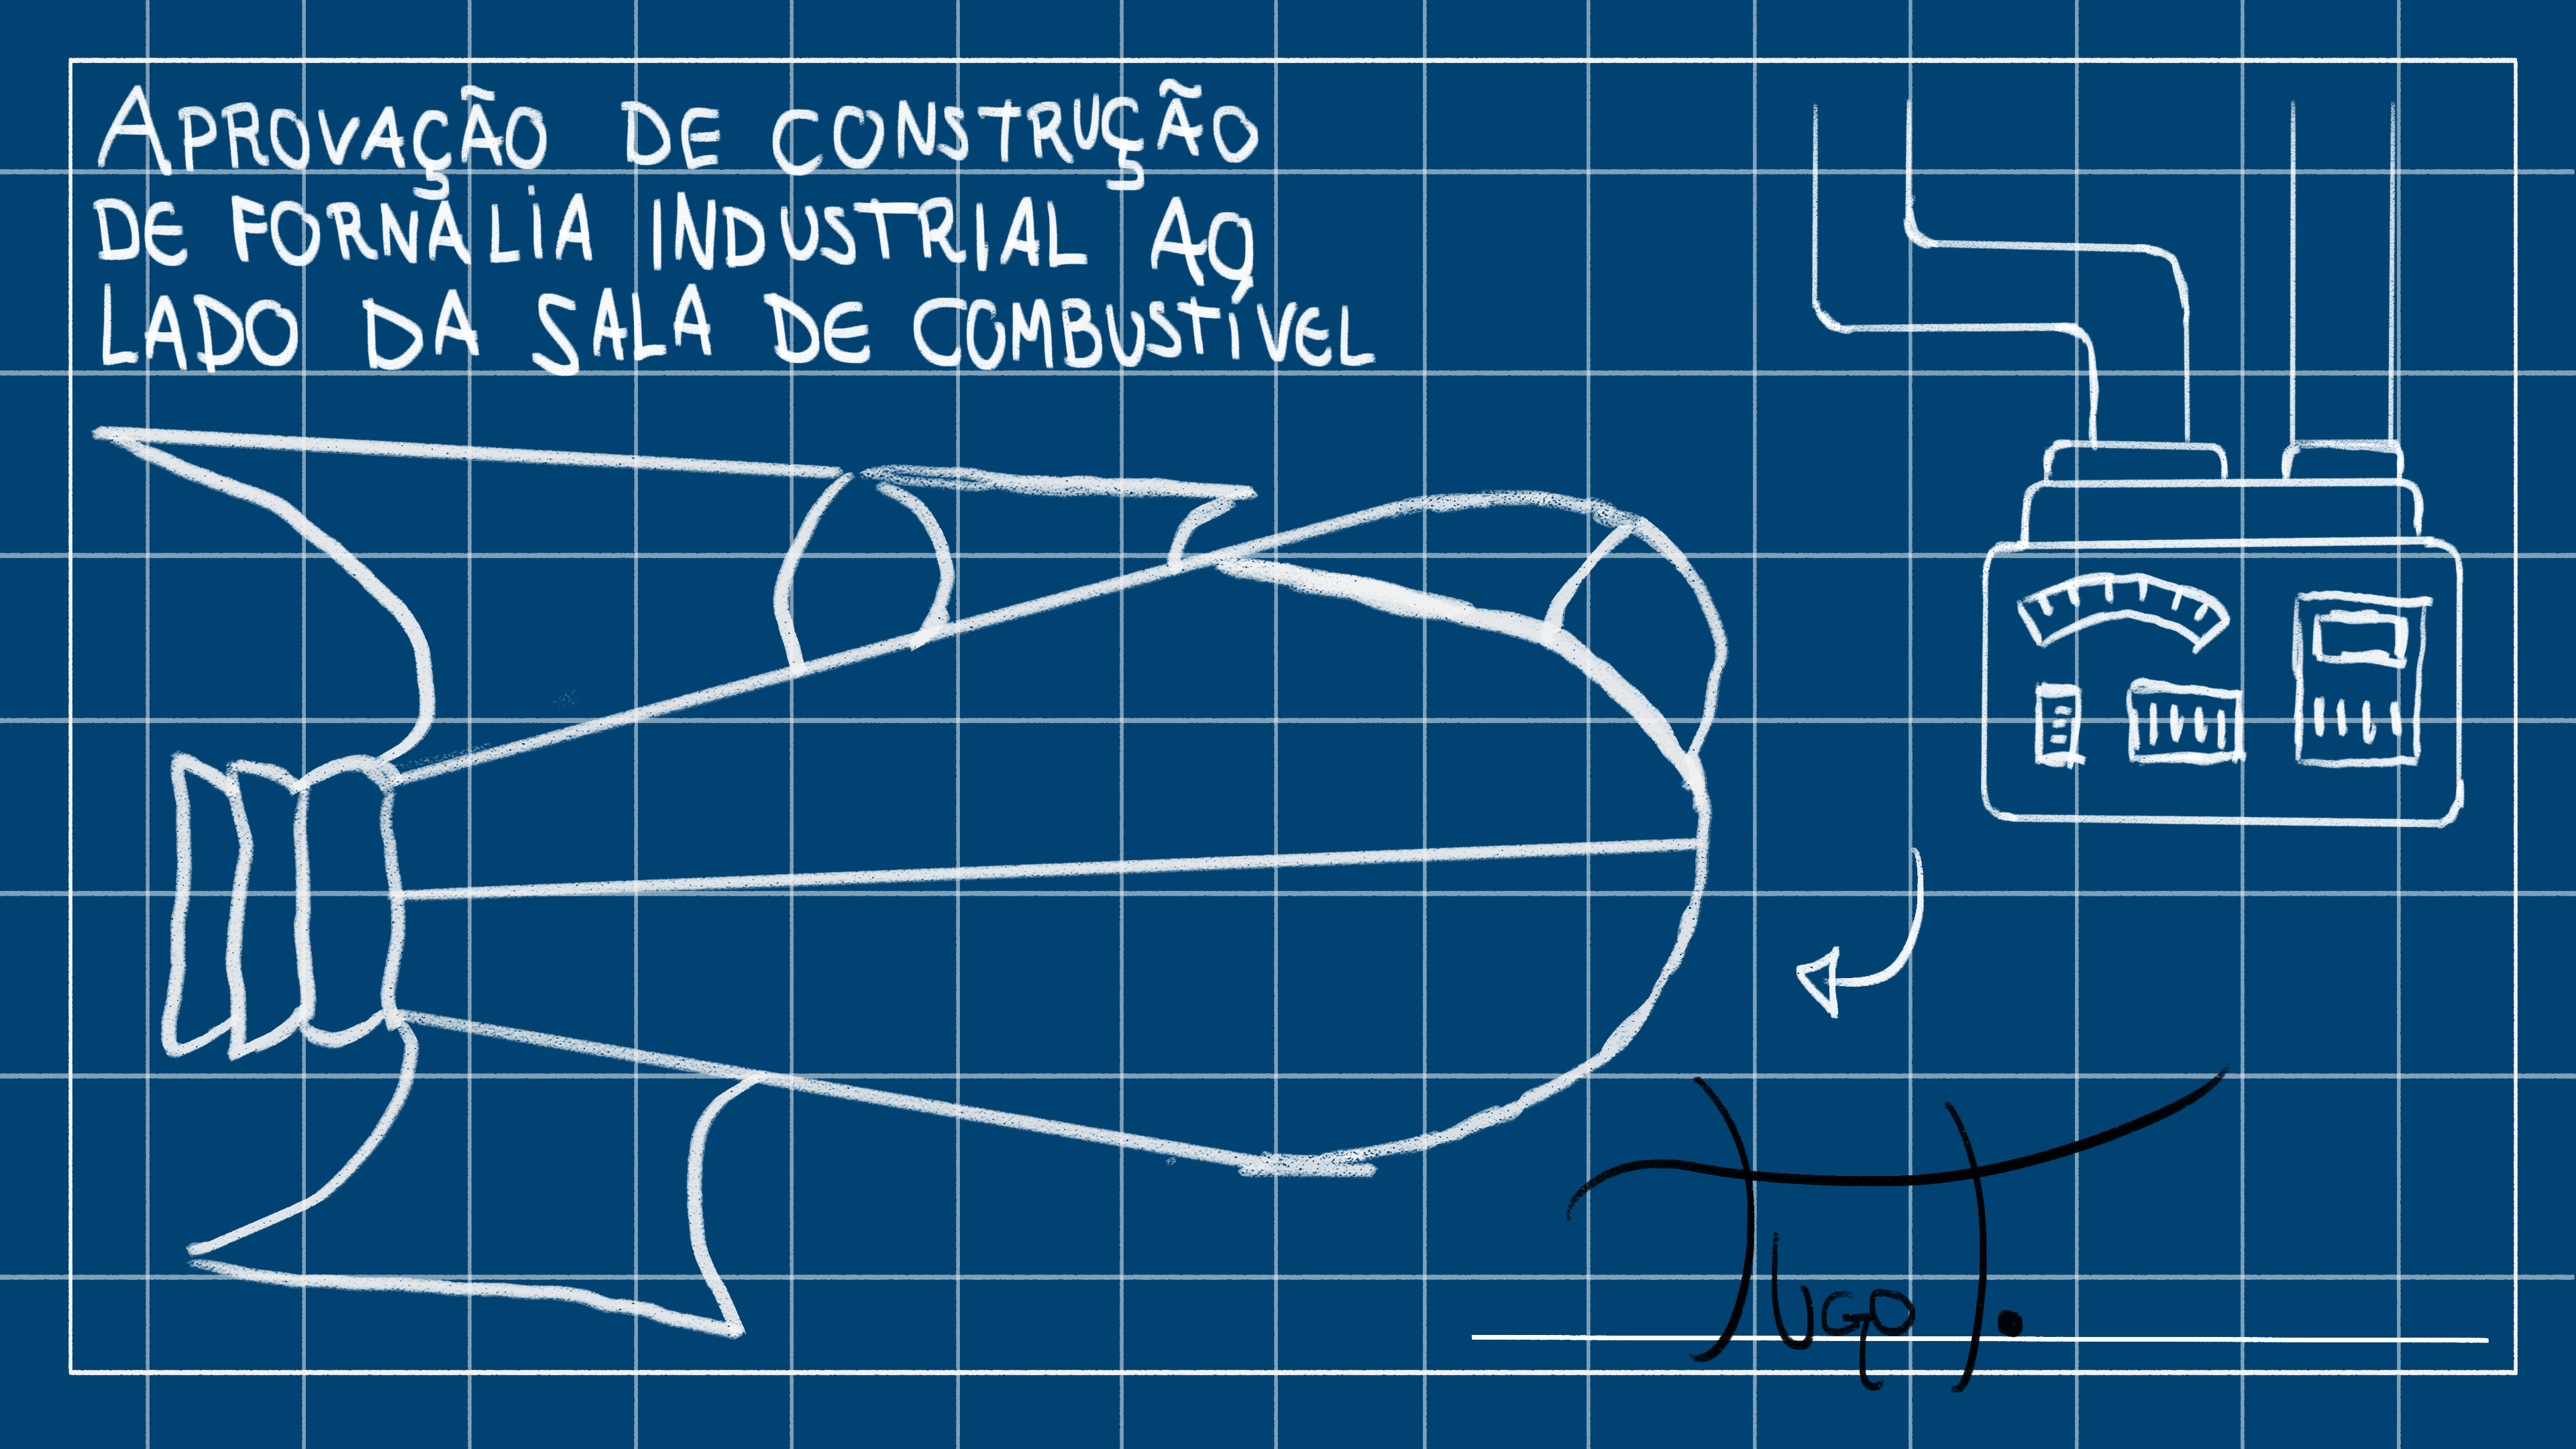 APROVAÇÃO DE CONSTRUÇÃO
DE FORNALIA INDUSTRIAL AO
LADO DA SALA DE COMBUSTÍVEL
Hugo.